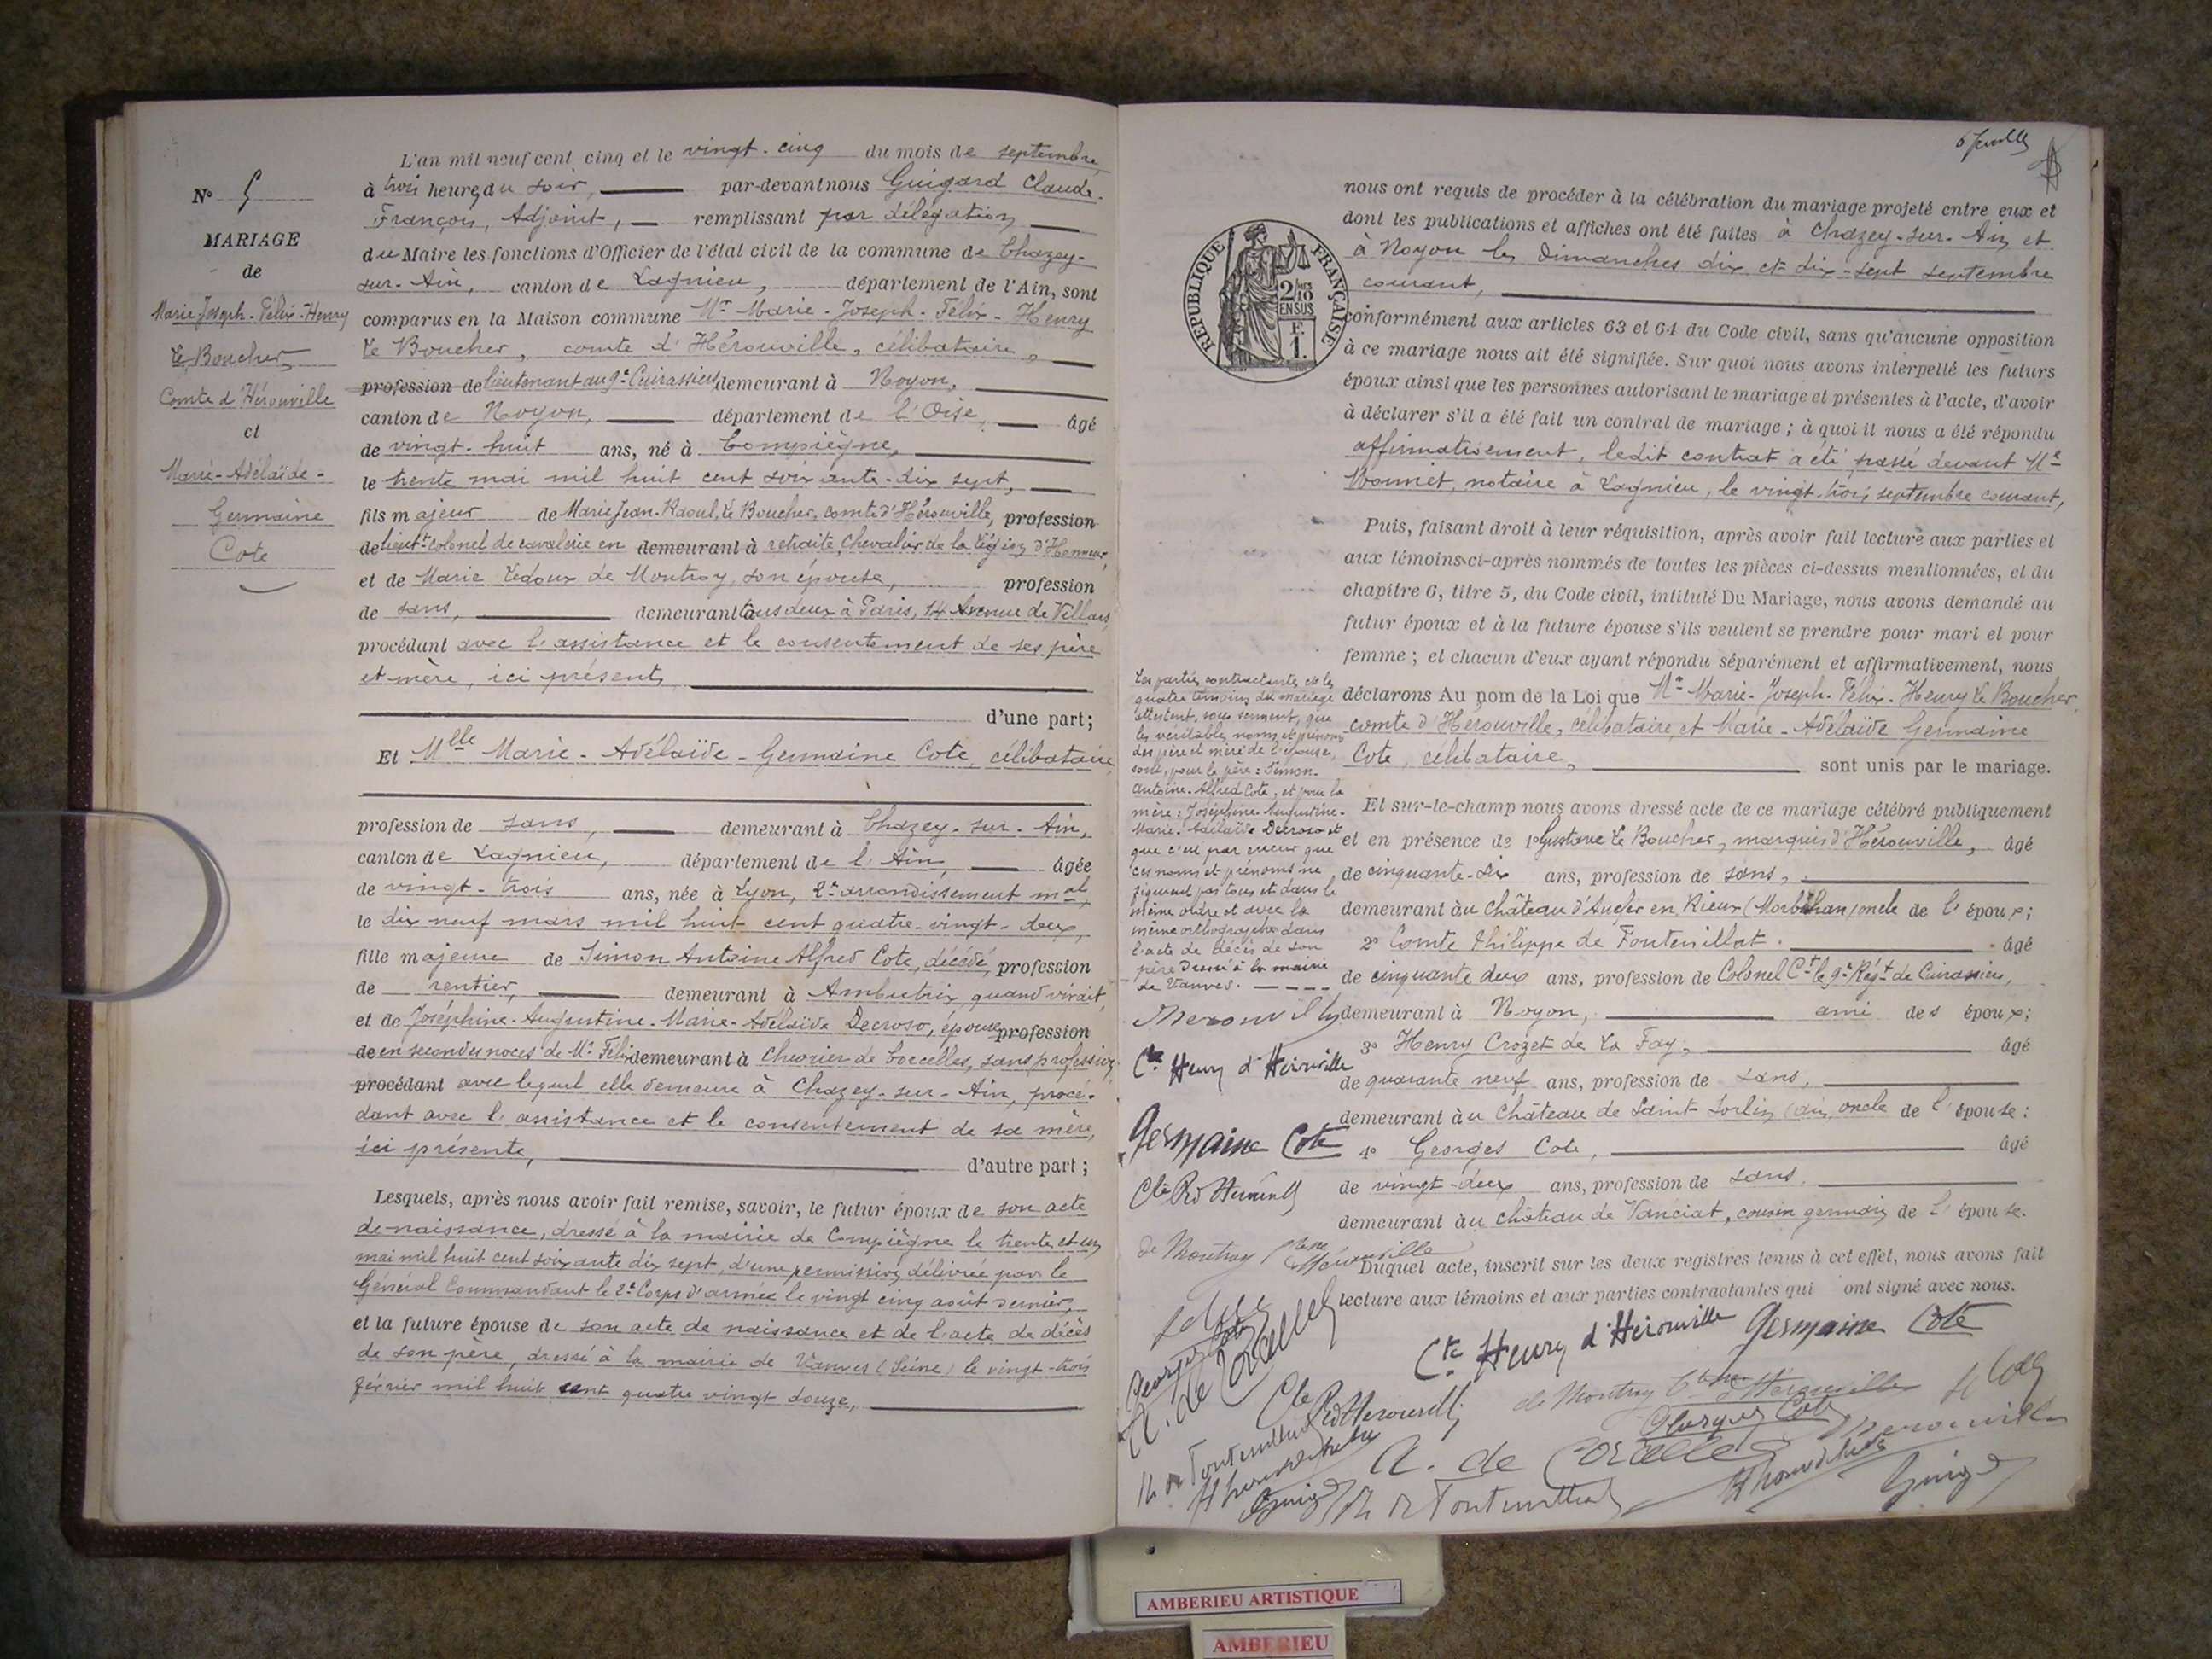 N° 5
MARIAGE
de
Marie Joseph-Félix-Henry
Le Boucher
Comte d'Hérouville
et
Marie-Adélaïde-
Germaine
Cote
L'an mil neuf cent cinq et le vingt-cinq du mois de septembre,
à trois heures du soir, par-devant nous Guigard Claude-
François, Adjoint, remplissant par délégation
du Maire les fonctions d'Officier de l'état civil de la commune de Chazey-
sur-Ain, canton de Lagnieu, département de l'Ain, sont
comparus en la Maison commune Mr Marie-Joseph-Félix-Henry
Le Boucher, comte d'Hérouville, célibataire,
profession de lieutenant au 9e Cuirassiers demeurant à Noyon,
canton de Noyon, département de l'Oise, âgé
de vingt-huit ans, né à Compiègne,
le trente mai mil huit cent soixante-dix sept,
fils majeur de Marie Jean-Raoul, Le Boucher, comte d'Hérouville, profession
de lieutt-colonel de cavalerie en demeurant à retraite, Chevalier de la Légion d'Honneur,
et de Marie Ledoux de Montroy, son épouse, profession
de sans, demeurant à tous deux à Paris, 14 Avenue de Villars,
procédant avec l'assistance et le consentement de ses père
et mère, ici présents,
d'une part;
Et Mlle Marie-Adélaïde-Germaine Cote, célibataire
profession de sans, demeurant à Chazey-sur-Ain,
canton de Lagnieu, département de l'Ain, âgée
de vingt-trois ans, née à Lyon, 2e arrondissement mal,
le dix neuf mars mil huit cent quatre-vingt-deux,
fille majeure de Simon Antoine Alfred Cote, décédé, profession
de rentier, demeurant à Ambutrix, quand vivait,
et de Joséphine-Augustine-Marie-Adélaïde Decroso, épouse profession
de en secondes noces de Mr Félix demeurant à Chevrier de Corcelles, sans profession,
procédant avec lequel elle demeure à Chazey-sur-Ain, procé-
dant avec l'assistance et le consentement de sa mère,
ici présente, d'autre part;
Lesquels, après nous avoir fait remise, savoir, le futur époux de son acte
de naissance, dressé à la mairie de Compiègne le trente et un
mai mil huit cent soixante dix sept, d'une permission délivrée par le
Général Commandant le 2e Corps d'armée le vingt cinq août dernier,
et la future épouse de son acte de naissance et de l'acte de décès
de son père, dressé à la mairie de Vanves (Seine) le vingt-trois
février mil huit cent quatre vingt douze,
nous ont requis de procéder à la célébration du mariage projeté entre eux et
dont les publications et affiches ont été faites à Chazey-sur-Ain et
à Noyon les Dimanches dix et dix-sept septembre
courant,
RÉPUBLIQUE FRANÇAISE
2/10
EN SUS
F.
1.
conformément aux articles 63 et 64 du Code civil, sans qu'aucune opposition
à ce mariage nous ait été signifiée. Sur quoi nous avons interpellé les futurs
époux ainsi que les personnes autorisant le mariage et présentes à l'acte, d'avoir
à déclarer s'il a été fait un contrat de mariage; à quoi il nous a été répondu
affirmativement, ledit contrat a été passé devant Me
Monnet, notaire à Lagnieu, le vingt-trois septembre courant,
Puis, faisant droit à leur réquisition, après avoir fait lecture aux parties et
aux témoins ci-après nommés de toutes les pièces ci-dessus mentionnées, et du
chapitre 6, titre 5, du Code civil, intitulé Du Mariage, nous avons demandé au
futur époux et à la future épouse s'ils veulent se prendre pour mari et pour
femme; et chacun d'eux ayant répondu séparément et affirmativement, nous
déclarons Au nom de la Loi que Mr Marie-Joseph-Félix-Henry Le Boucher,
comte d'Hérouville, célibataire, et Marie-Adélaïde Germaine
Cote, célibataire, sont unis par le mariage.
Et sur-le-champ nous avons dressé acte de ce mariage célébré publiquement
et en présence de 1° Gustave Le Boucher, marquis d'Hérouville, âgé
de cinquante-six ans, profession de sans,
demeurant au Château d'Aucfer en Rieux (Morbihan) oncle de l'époux;
2° Comte Philippe de Fontenillat âgé
de cinquante deux ans, profession de Colonel Ct le 9e Régt de Cuirassiers,
demeurant à Noyon, ami des époux;
3° Henry Crozet de La Fay, âgé
de quarante neuf ans, profession de sans,
demeurant au Château de Saint-Sorlin (Ain) oncle de l'épouse;
4° Georges Cote, âgé
de vingt-deux ans, profession de sans,
demeurant au château de Vanciat, cousin germain de l'épouse.
Duquel acte, inscrit sur les deux registres tenus à cet effet, nous avons fait
lecture aux témoins et aux parties contractantes qui ont signé avec nous.
Les parties contractantes et les
quatre témoins du mariage
attestent, sous serment, que
les véritables noms et prénoms
des père et mère de l'épouse,
sont, pour le père: Simon-
Antoine-Alfred Cote, et pour la
mère: Joséphine-Augustine-
Marie-Adélaïde Decroso et
que c'est par erreur que
ces noms et prénoms ne
figurent pas tous et dans le
même ordre et avec la
même orthographe dans
l'acte de décès de son
père dressé à la mairie
de Vanves.
Cte Henry d'Hérouville
Germaine Cote
Cte Rd Hérouville
de Montroy Ctesse d'Hérouville
Georges Cote
A. de Corcelles
Ph de Fontenillat
Cte Henry d'Hérouville Germaine Cote
Cte Rd Hérouville
de Montroy Ctesse d'Hérouville
Georges Cote
Hérouville
A. de Corcelles
Ph de Fontenillat
AMBERIEU ARTISTIQUE
AMBERIEU